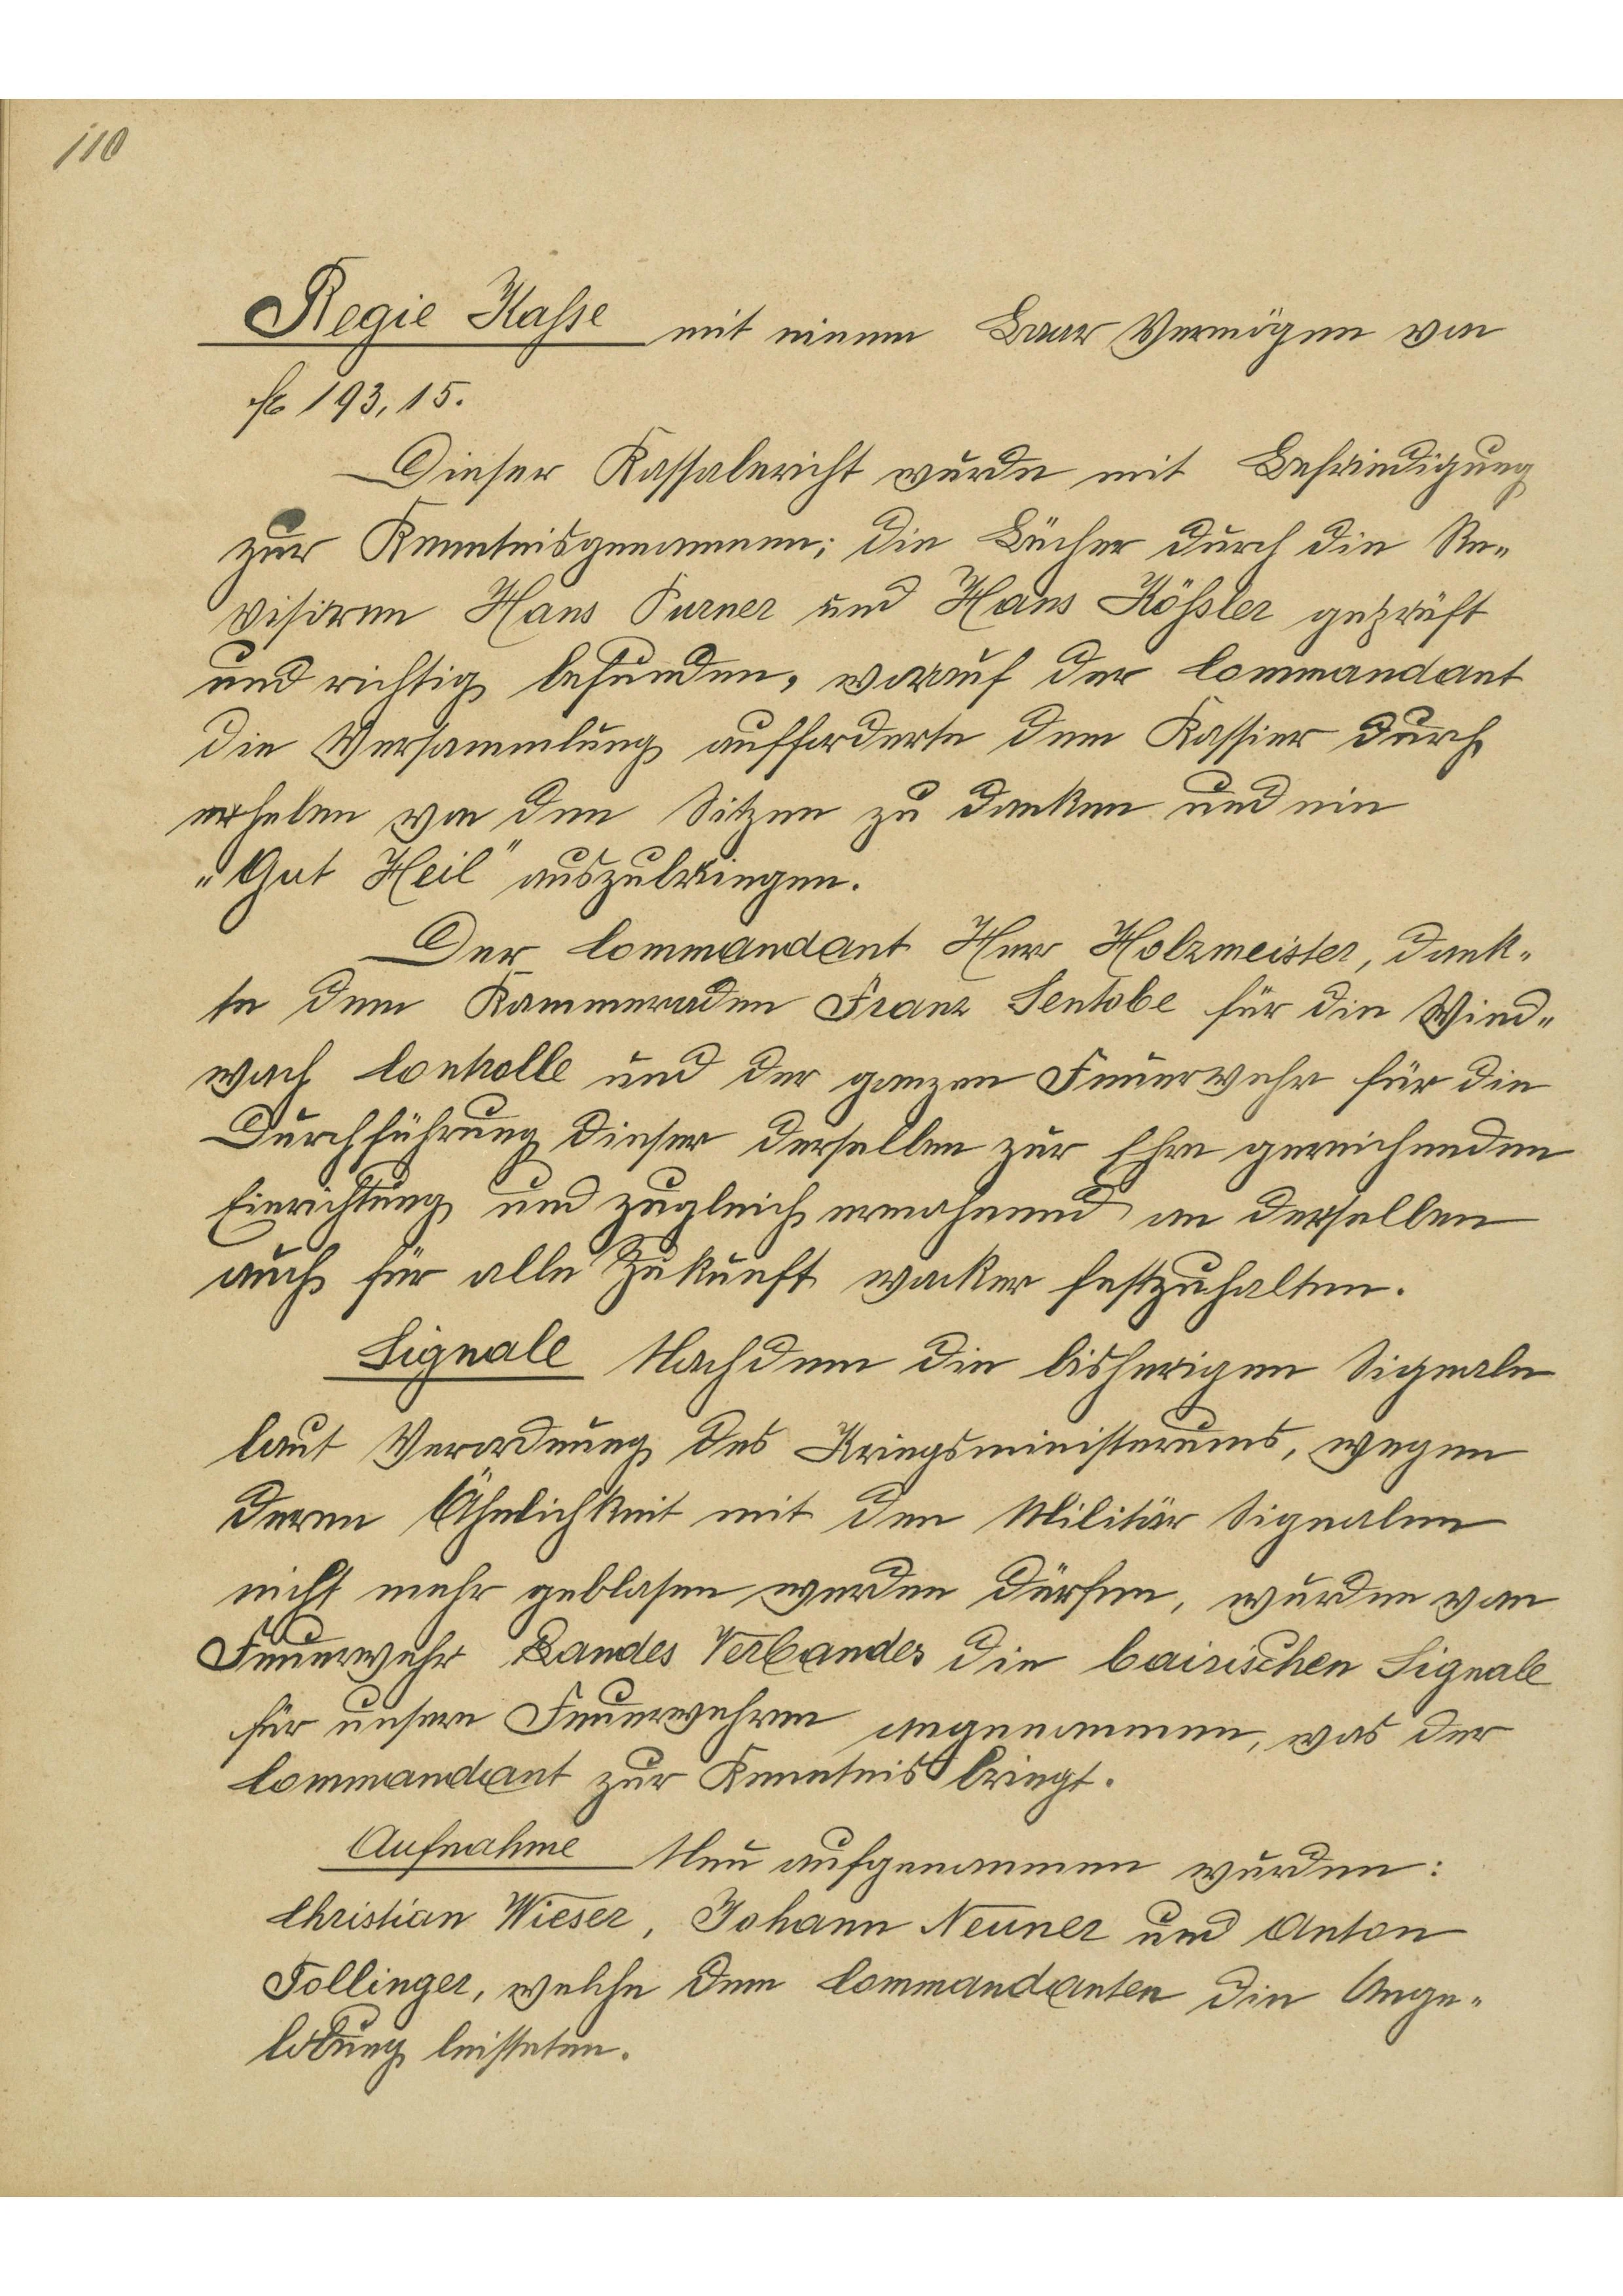 110
Regie Kasse mit einem Baar Vermögen von
fl 193,15.
Dieser Kassabericht wurde mit Befriedigung
zur Kenntnisgenommen; die Bücher durch die Re-
visoren Hans Purner und Hans Kößler geprüft
und richtig befunden, worauf der Commandant
die Versammlung aufforderte dem Kassier durch
erheben von den Sitzen zu danken und ein
„Gut Heil" auszubringen.
Der Commandant Herr Holzmeister, dank-
te dem Kammeraden Franz Sentobe für die Wind-
wach Controlle und der ganzen Feuerwehr für die
Durchführung dieser derselben zur Ehre gereichenden
Einrichtung und zugleich ermahnend an derselben
auch für alle Zukunft wacker festzuhalten.
Signale Nachdem die bisherigen Signale
laut Verordnung des Kriegsministerums, wegen
deren Ähnlichkeit mit den Militär Signalen
nicht mehr geblasen werden dürfen, wurden vom
Feuerwehr Landes Verbandes die bairischen Signale
für unsere Feuerwehren angenommen, was der
Commandant zur Kenntnis bringt.
Aufnahme Neu aufgenommen wurden:
Christian Wieser, Johann Neuner und Anton
Follinger, welche dem Commandanten die Ange-
lobung leisteten.